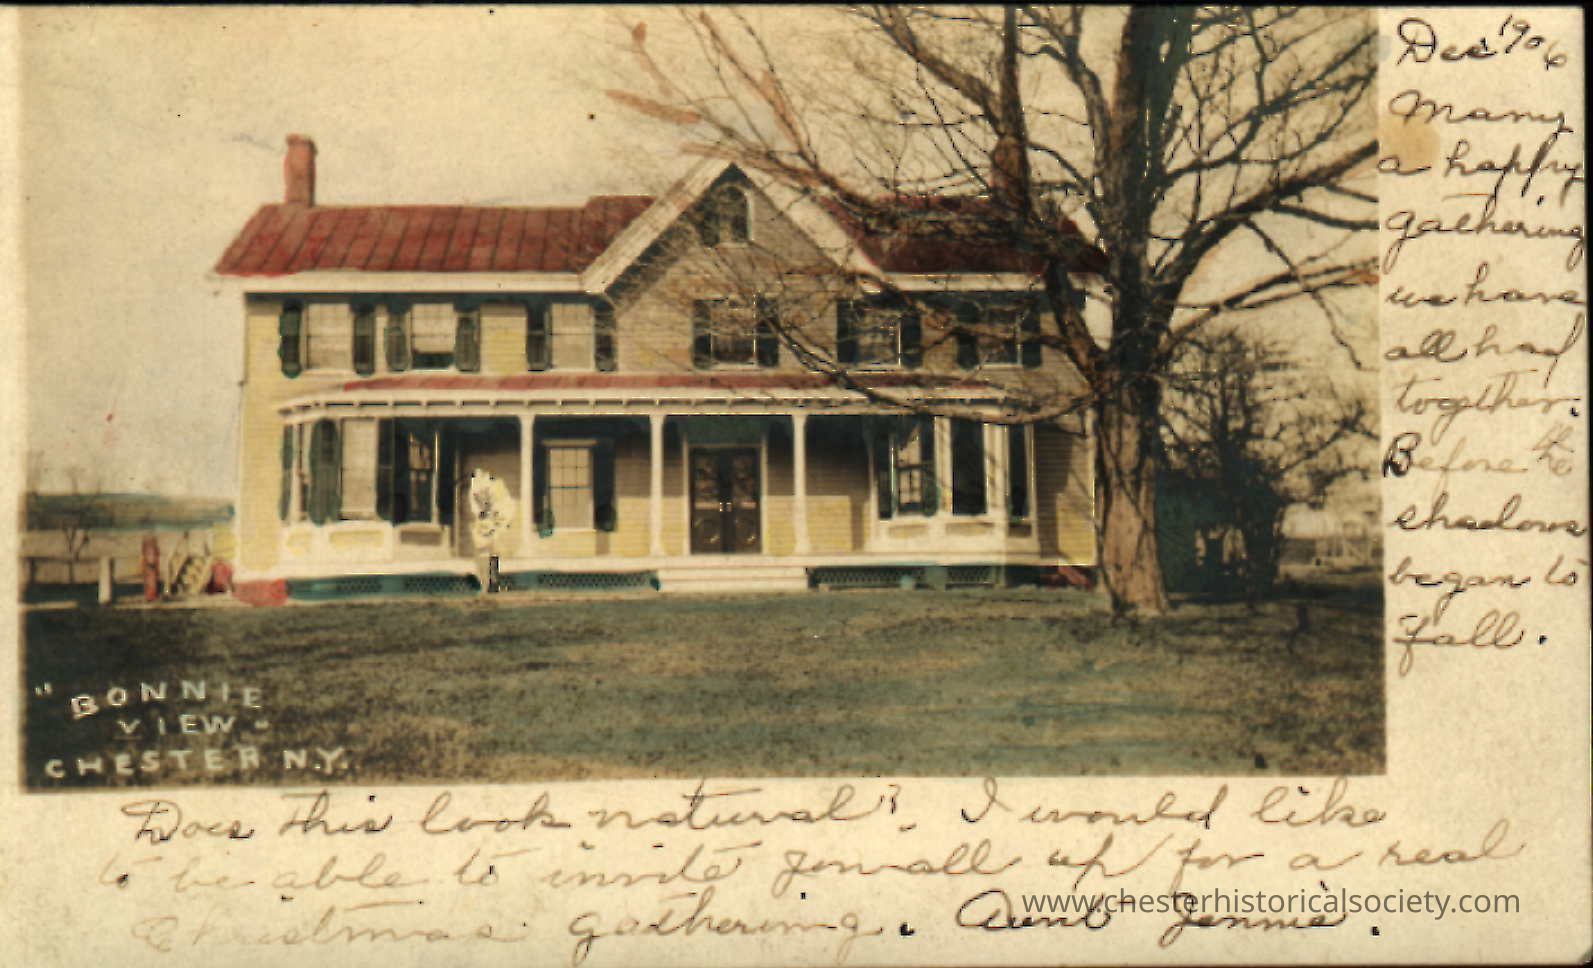 Dec 1906
Many
a happy
gathering
we have
all had
together.
Before the
shadows
began to
fall.
"BONNIE
VIEW"
CHESTER N.Y.
Does this look natural? I would like
to be able to invite you all up for a real
Christmas gathering. Aunt Jennie.
www.chesterhistoricalsociety.com